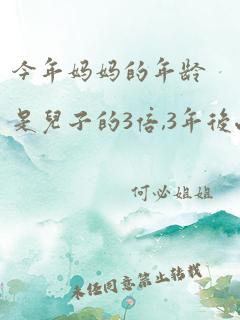 今年妈妈的年龄
是兒子的3倍,3年後
何必姐姐
未经同意禁止转载